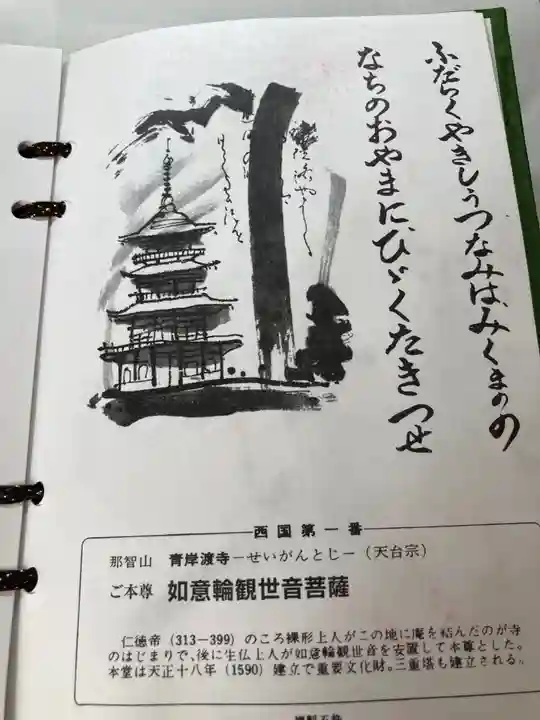 ふだらくやきしうつなみは、みくまのの
なちのおやまに、ひゞくたきつせ
西国第一番
那智山 青岸渡寺－せいがんとじ－（天台宗）
ご本尊 如意輪観世音菩薩
仁徳帝（313－399）のころ裸形上人がこの地に庵を結んだのが寺
のはじまりで、後に生仏上人が如意輪観世音を安置して本尊とした。
本堂は天正十八年（1590）建立で重要文化財。三重塔も建立される。